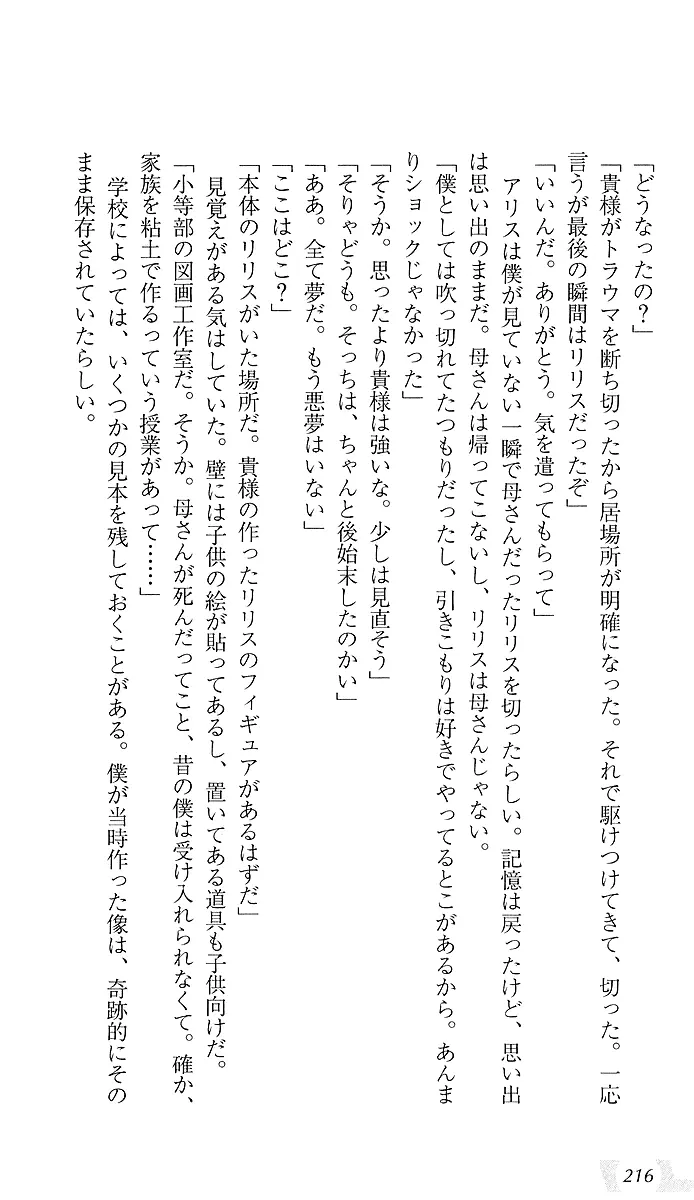 「どうなったの？」
「貴様がトラウマを断ち切ったから居場所が明確になった。それで駆けつけてきて、切った。一応
言うが最後の瞬間はリリスだったぞ」
「いいんだ。ありがとう。気を遣ってもらって」
　アリスは僕が見ていない一瞬で母さんだったリリスを切ったらしい。記憶は戻ったけど、思い出
は思い出のままだ。母さんは帰ってこないし、リリスは母さんじゃない。
「僕としては吹っ切れてたつもりだったし、引きこもりは好きでやってるとこがあるから。あんま
りショックじゃなかった」
「そうか。思ったより貴様は強いな。少しは見直そう」
「そりゃどうも。そっちは、ちゃんと後始末したのかい」
「ああ。全て夢だ。もう悪夢はいない」
「ここはどこ？」
「本体のリリスがいた場所だ。貴様の作ったリリスのフィギュアがあるはずだ」
　見覚えがある気はしていた。壁には子供の絵が貼ってあるし、置いてある道具も子供向けだ。
「小等部の図画工作室だ。そうか。母さんが死んだってこと、昔の僕は受け入れられなくて。確か、
家族を粘土で作るっていう授業があって……」
　学校によっては、いくつかの見本を残しておくことがある。僕が当時作った像は、奇跡的にその
まま保存されていたらしい。
216